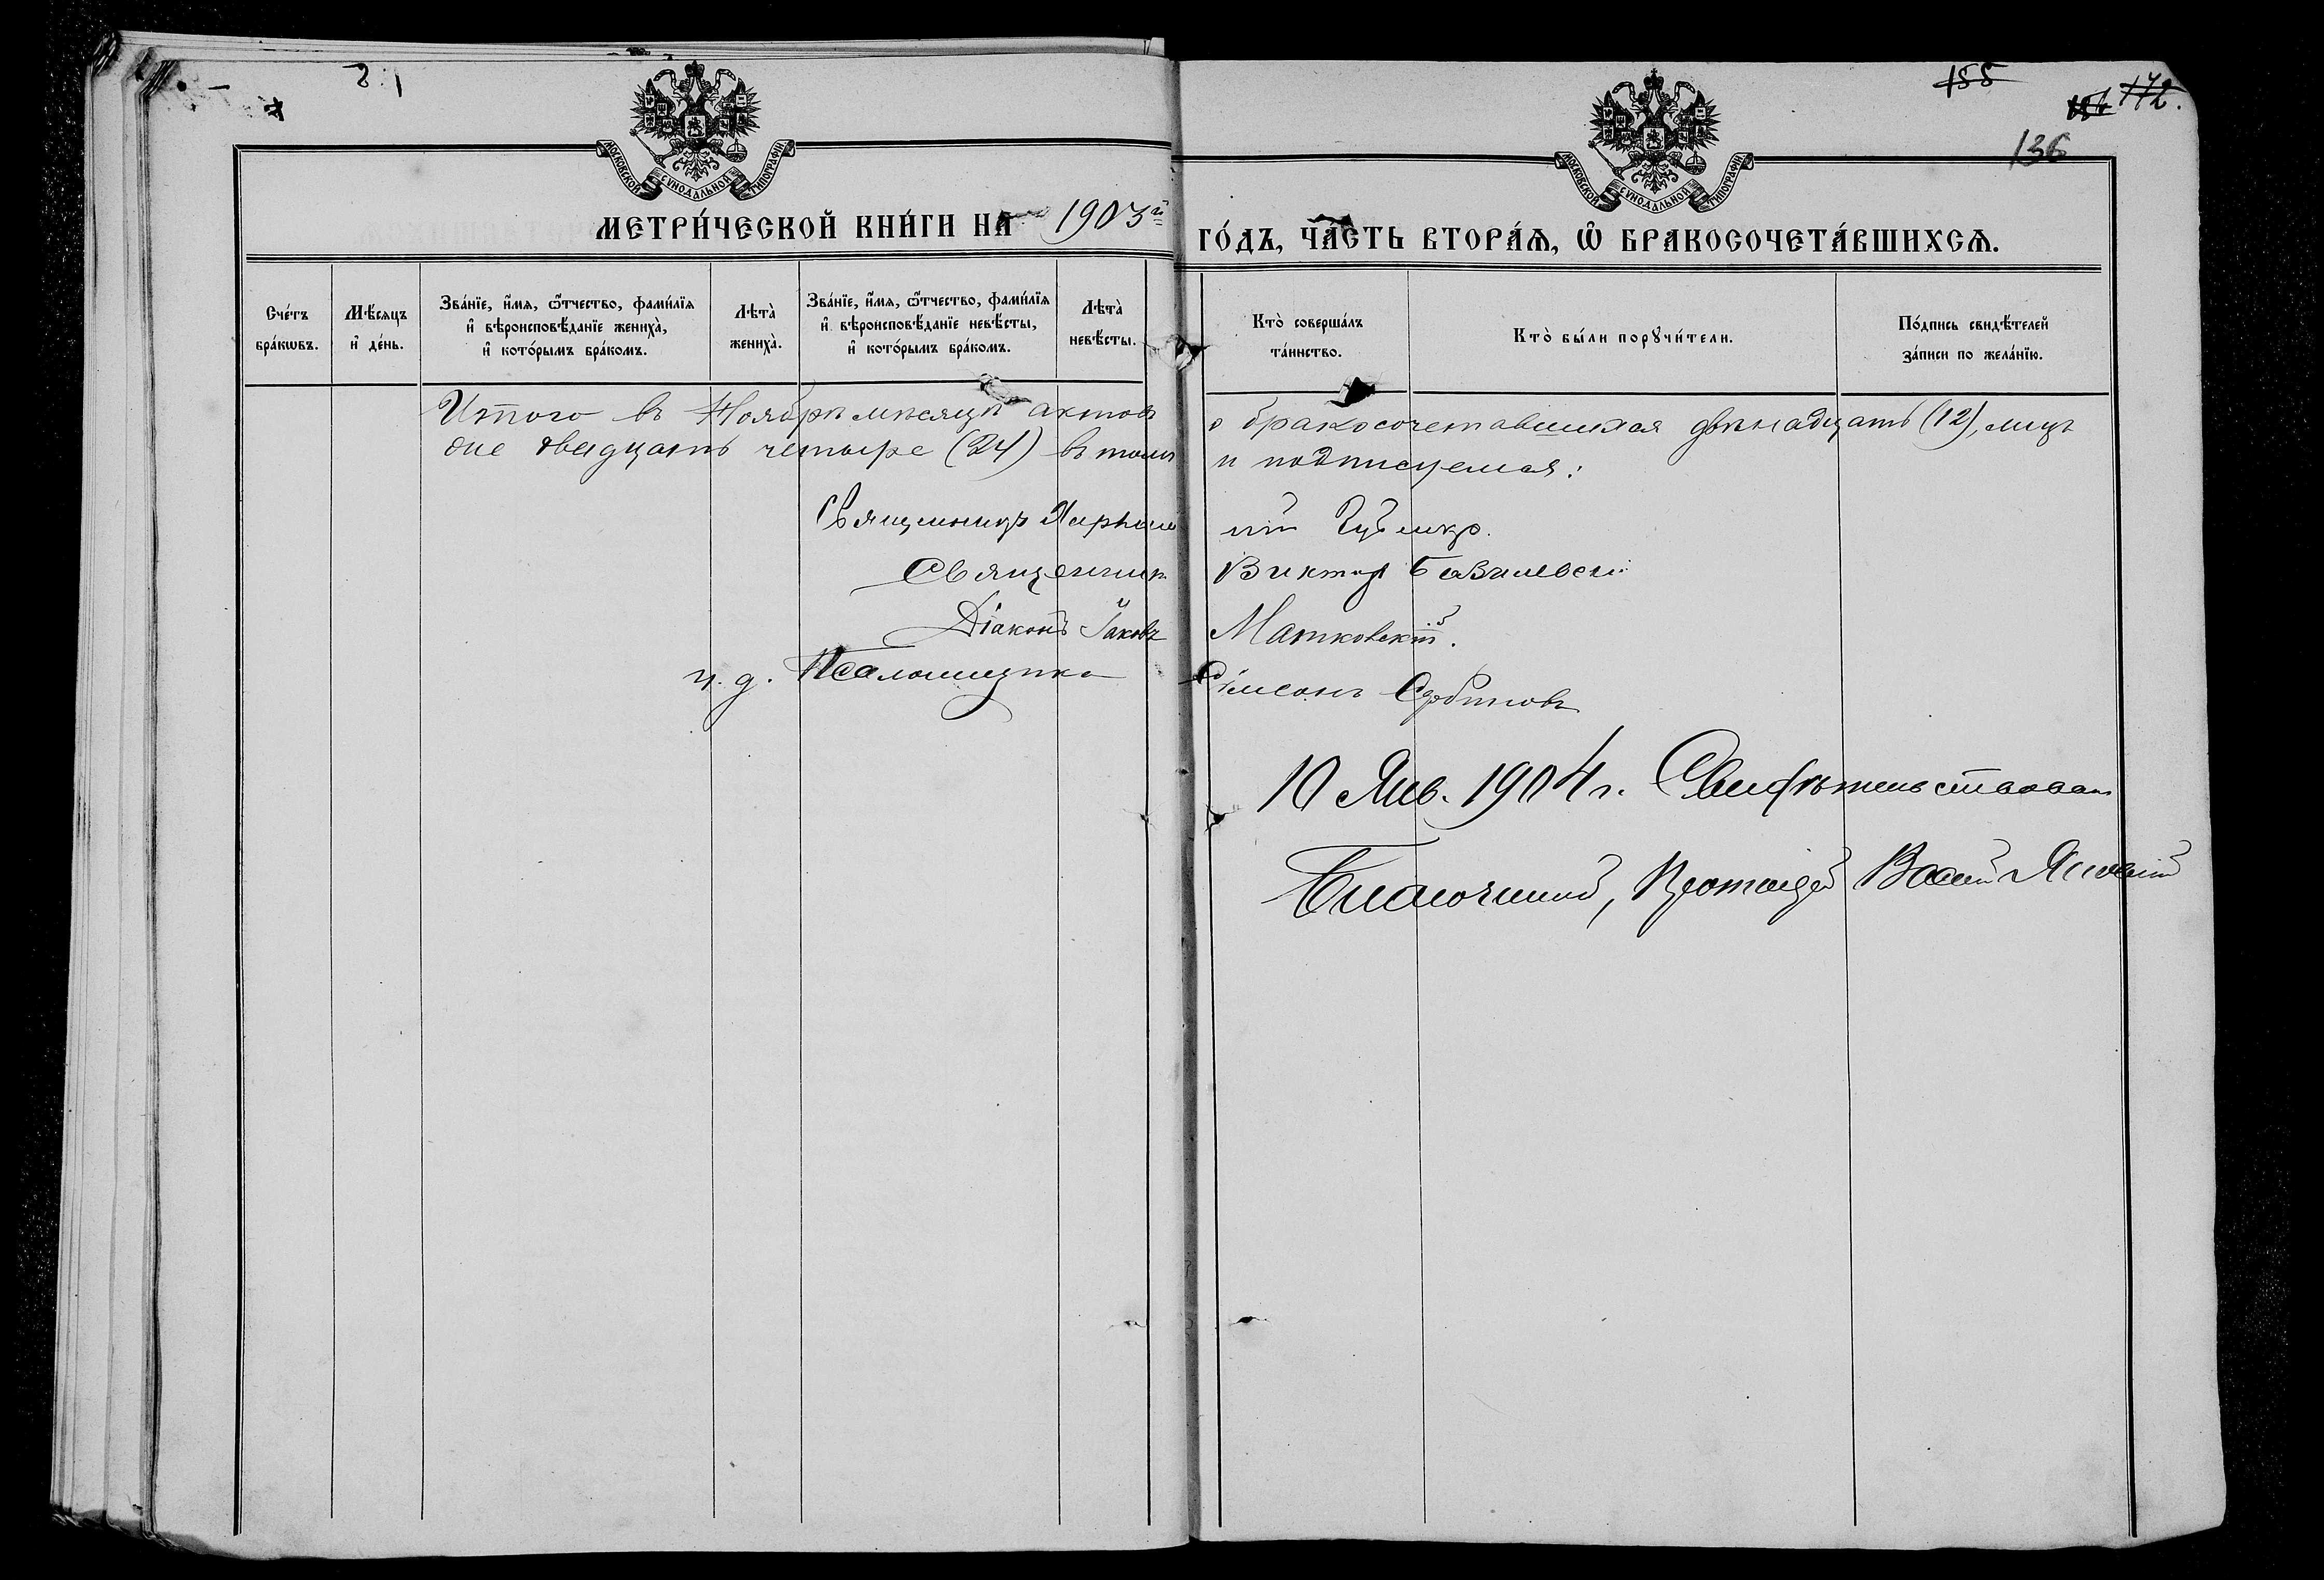 155
172.
136
МОСКОВСКОЙ СѴНОДАЛЬНОЙ ТИПОГРАФІИ
МОСКОВСКОЙ СѴНОДАЛЬНОЙ ТИПОГРАФІИ
МЕТРИ́ЧЕСКОЙ КНИ́ГИ НА 1903й ГО́ДЪ, ЧА́СТЬ ВТОРА́Ѧ, Ѽ БРАКОСОЧЕТА́ВШИХСѦ.
Сче́тъ бра́кѡвъ.
Мѣ́сяцъ и҆ де́нь.
Зва́нїе, и҆́мя, ѻ҆́тчество, фами́лїя и҆ вѣроисповѣ́данїе жениха̀, и҆ кото́рымъ бра́комъ.
Лѣта̀ жениха̀.
Зва́нїе, и҆́мя, ѻ҆́тчество, фами́лїя и҆ вѣроисповѣ́данїе невѣ́сты, и҆ кото́рымъ бра́комъ.
Лѣта̀ невѣ́сты.
Кто̀ соверша́лъ та́инство.
Кто̀ бы́ли порꙋчи́тели.
По́дпись свидѣ́телей за́писи по жела́нїю.
Итого въ Ноябрѣ мѣсяцѣ актовъ о бракосочетавшихся двѣнадцать (12), лицъ
обие двадцать четыре (24) въ томъ и подписуемся:
Священникъ
Священник Викторъ
Діаконъ Іаковъ Матковскій.
и. д. Псаломщика Симеонъ
10 Янв. 1904 г. Свидѣтельствовалъ
Благочинный, Протоіерей